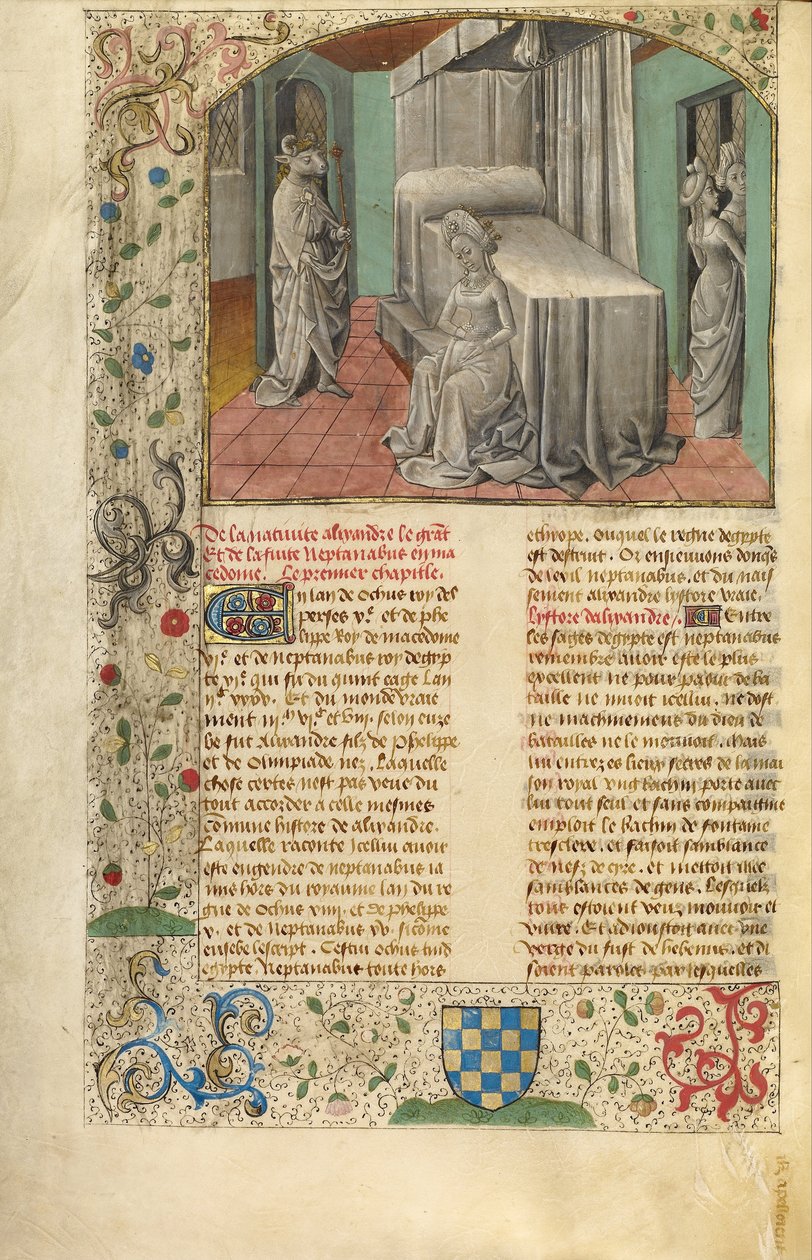 De la natiuite alixandre le grãt
Et de la fuite Neptanabus en ma
cedome. Le premier chapitle.
En lan de Ochus roy des
perses vᵉ. et de phe
lippe Roy de macedome
viᵉ. et de Neptanabus roy degyp
te viᵉ. qui fu du quint eage Lan
Et du monde vraie
ment selon euze
be fut Alixandre filz de Phelippe
et de Olimpiade nez. Laquelle
chose certes nest pas veue du
tout accorder a celle mesmes
cõmune histore de alixandre.
Laquelle raconte Icellui auoir
este engendre de neptanabus ia
mis hors du royaume lan du re
gne de Ochus viiii. et de phelippe
v. et de Neptanabus xv. sicõme
eusebe lescript. Cestui Ochus
egypte Neptanabus boute hors
ethyope. Ouquel le regne degypte
est destruit. Or ensieuuons donqs
de lexil neptanabus. et du nais
sement alixandre lystore vraie.
Lystore dalixandre. Entre
les sages degypte est neptanabus
remembre auoir este le plus
excellent ne pour paour de ba
taille ne muoit icellui. ne dost
ne machinemens du dieu de
batailles ne le mouuoit. Mais
lui entrez es lieux secres de la mai
son royal vng bachin porte auec
lui tout seul et sans compaignie
emploit le bachin de fontaine
tresclere. et faisoit samblance
de nefz de cyre. et mettoit
samblances de gens. Lesquelz
tous estoient veuz mouuoir et
viure. Et adioustoit auec vne
verge du fust de hebenus. et di
soient paroles par lesquelles